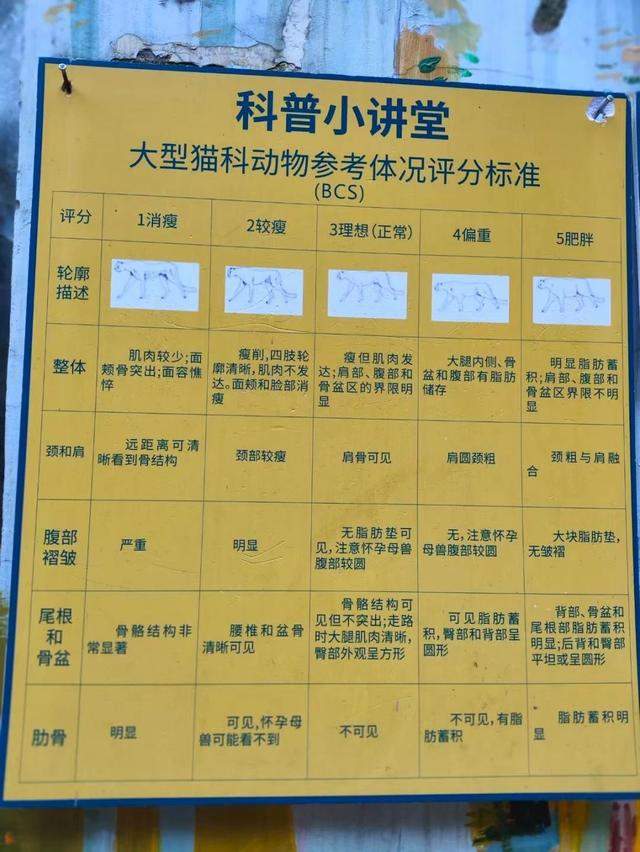 科普小讲堂
大型猫科动物参考体况评分标准
(BCS)
评分
1消瘦
2较瘦
3理想(正常)
4偏重
5肥胖
轮廓
描述
整体
肌肉较少;面
颊骨突出;面容憔
悴
瘦削,四肢轮
廓清晰,肌肉不发
达。面颊和脸部消
瘦
瘦但肌肉发
达;肩部、腹部和
骨盆区的界限明
显
大腿内侧、骨
盆和腹部有脂肪
储存
明显脂肪蓄
积;肩部、腹部和
骨盆区界限不明
显
颈和肩
远距离可清
晰看到骨结构
颈部较瘦
肩骨可见
肩圆颈粗
颈粗与肩融
合
腹部
褶皱
严重
明显
无脂肪垫可
见,注意怀孕母兽
腹部较圆
无,注意怀孕
母兽腹部较圆
大块脂肪垫,
无皱褶
尾根
和
骨盆
骨骼结构非
常显著
腰椎和盆骨
清晰可见
骨骼结构可
见但不突出;走路
时大腿肌肉清晰,
臀部外观呈方形
可见脂肪蓄
积,臀部和背部呈
圆形
背部、骨盆和
尾根部脂肪蓄积
明显;后背和臀部
平坦或呈圆形
肋骨
明显
可见,怀孕母
兽可能看不到
不可见
不可见,有脂
肪蓄积
脂肪蓄积明
显